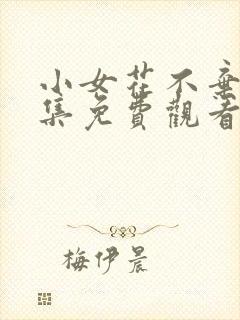 小女花不棄
集免費觀看
梅伊晨